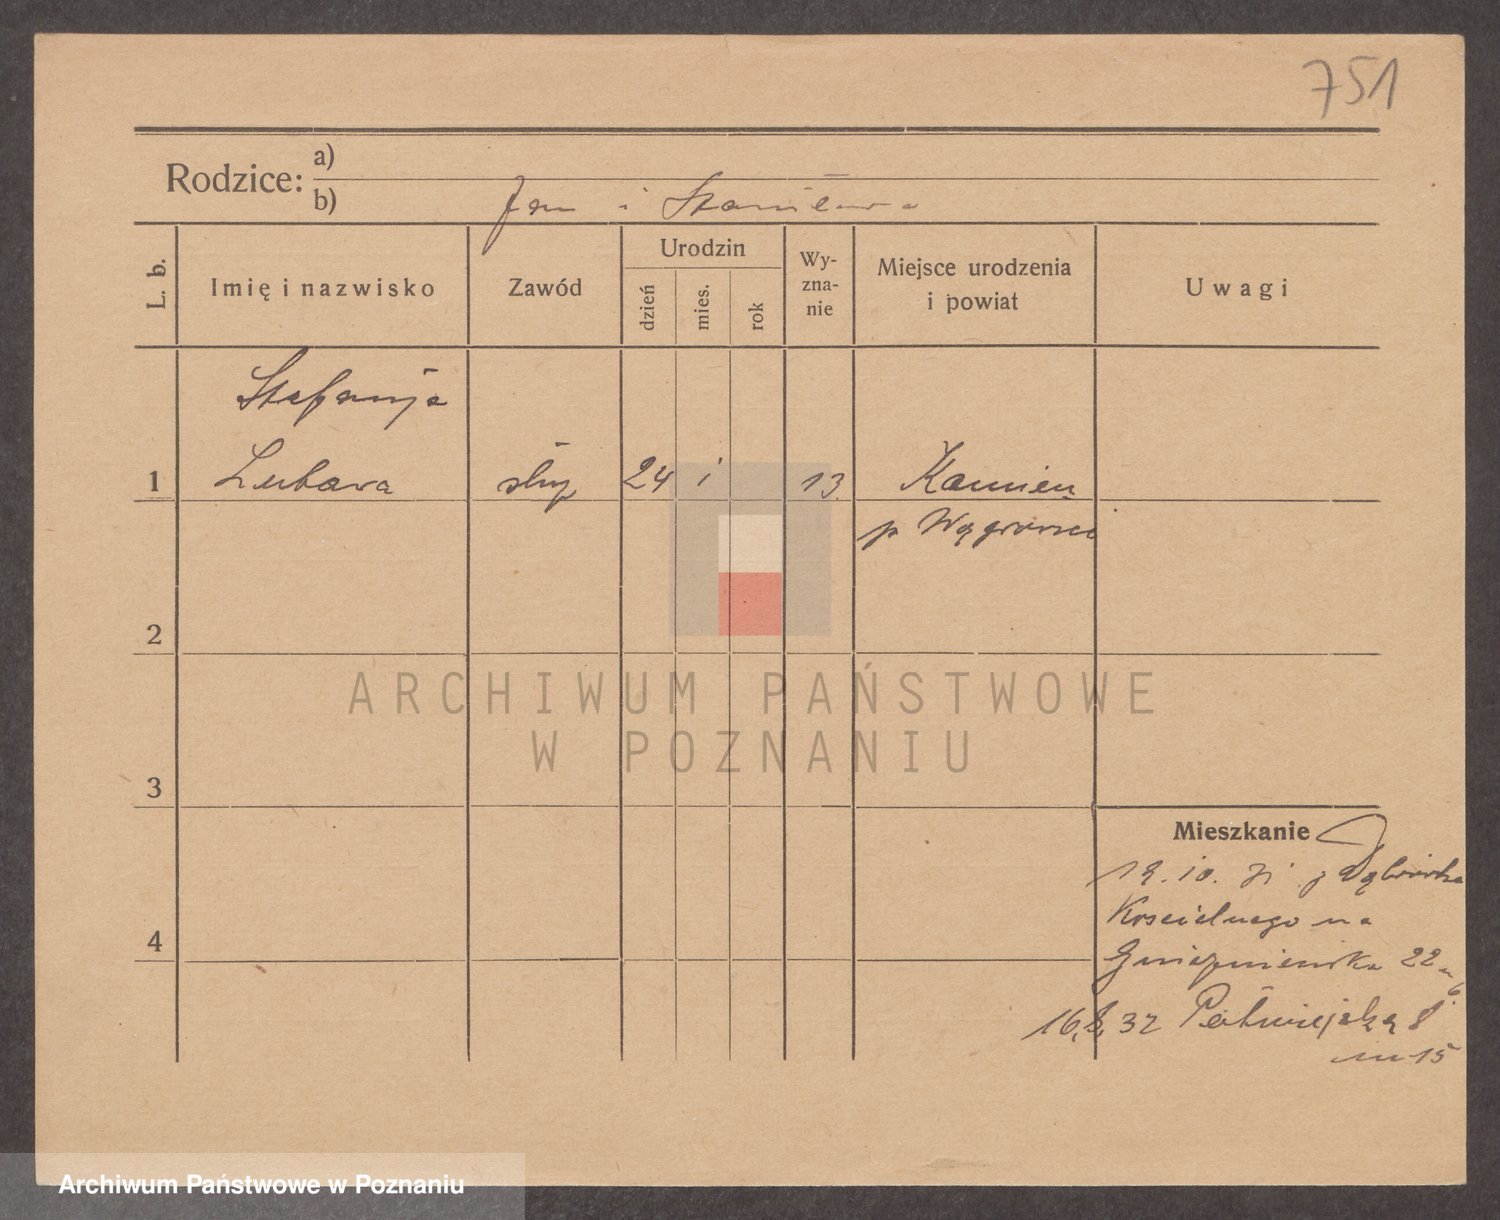 751
Rodzice: a)
b) Jan i Stanisława
L. b.
Imię i nazwisko
Zawód
Urodzin
dzień
mies.
rok
Wy-
zna-
nie
Miejsce urodzenia
i powiat
Uwagi
Stefanja
1 Lubawa służ 24 i 13 Kamien
p Wągrowiec
2
ARCHIWUM PAŃSTWOWE
W POZNANIU
3
Mieszkanie
19.10. 31 z Dąbrówka
Kościelnego na
4
Gnieźnieńska 22
16,8,32 Półwiejską 8
m 15
Archiwum Państwowe w Poznaniu